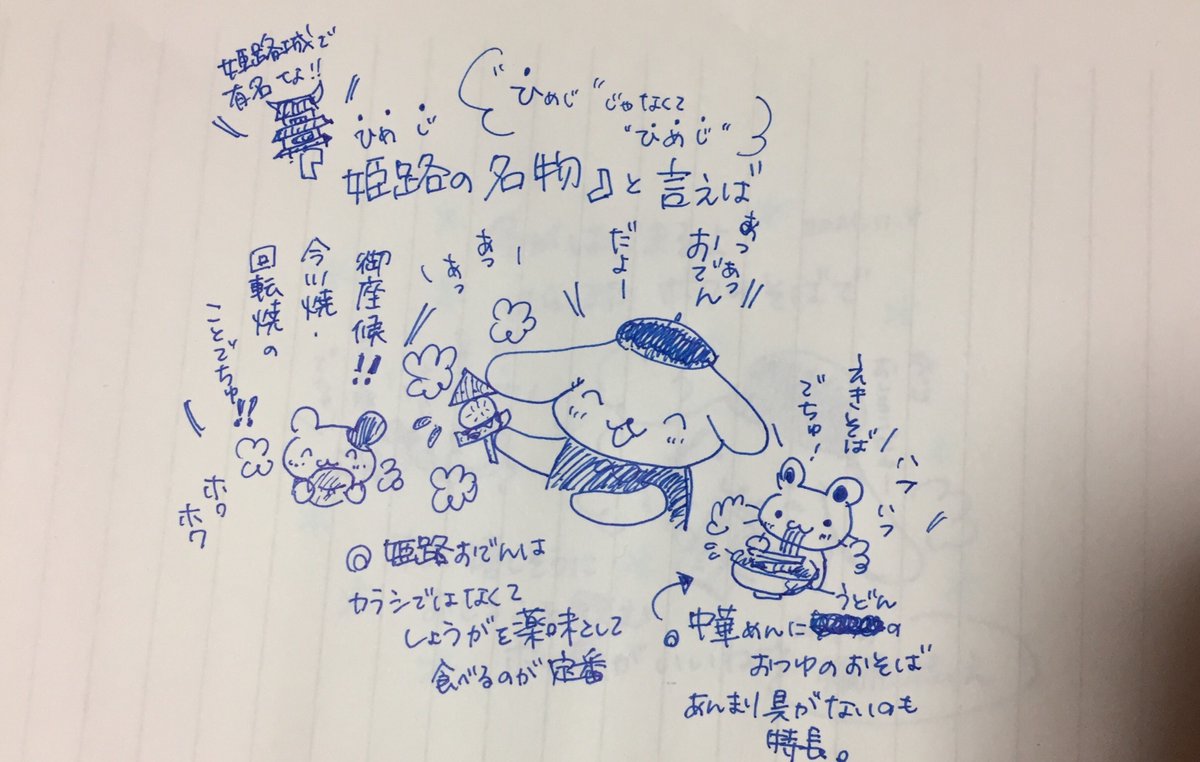 姫路城で
有名な!!
"ひめじ"じゃなくて
"ひめじ"
ひめじ
姫路の名物』と言えば
あっ
あっ
おでん
だよー
あっ
あっ
御座候!!
今川焼・
回転焼の
ことでちゅ!!
ホク
ホク
えきそば
でちゅ!
◎姫路おでんは
カラシではなくて
しょうがを薬味として
食べるのが定番
うどん
◎中華めんにの
おつゆのおそば
あんまり具がないのも
特長。